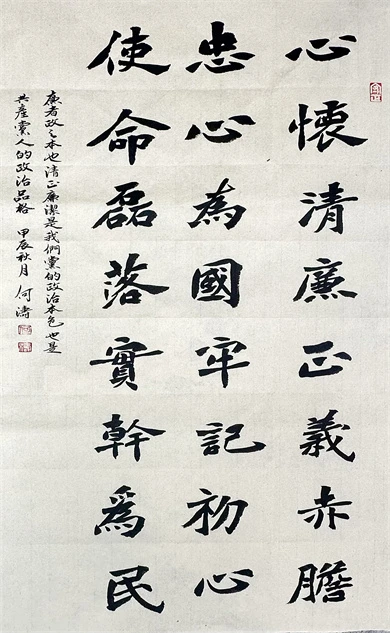 心懷清廉正義赤膽
忠心為國牢記初心
使命磊落實幹爲民
廉者政之本也清正廉潔是我們黨的政治本色也是
共產黨人的政治品格 甲辰秋月 何濤